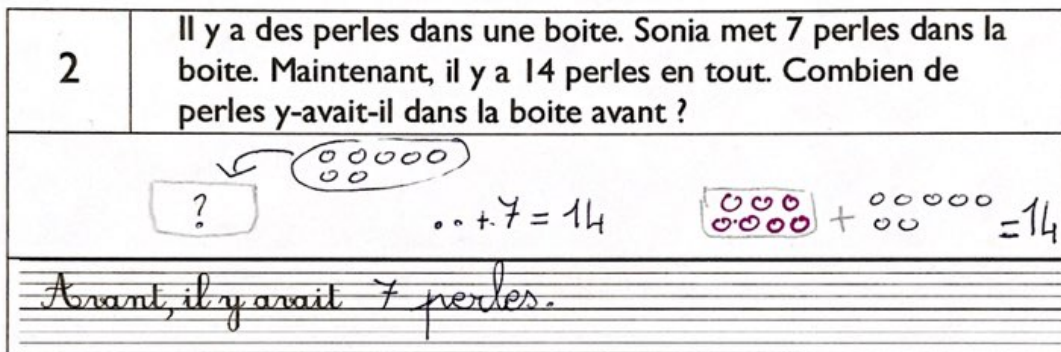 2
Il y a des perles dans une boite. Sonia met 7 perles dans la
boite. Maintenant, il y a 14 perles en tout. Combien de
perles y-avait-il dans la boite avant ?
?
..+7=14
+
=14
Avant, il y avait 7 perles.